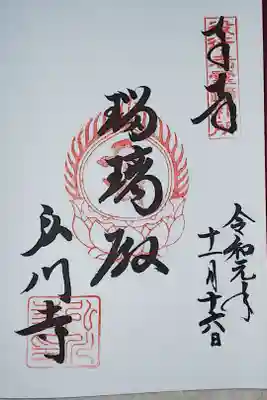 奉拝
令和元年
十一月十六日
瑠璃殿
川寺